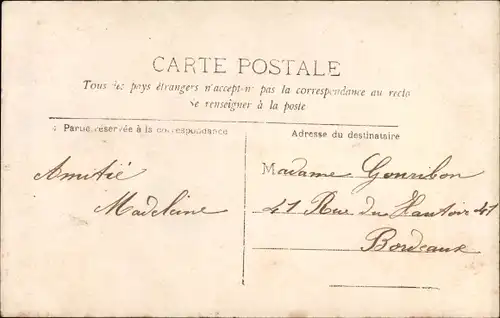 CARTE POSTALE
Tous les pays étrangers n'acceptent pas la correspondance au recto
Se renseigner à la poste
Partie réservée à la correspondance
Adresse du destinataire
Amitié
Madeleine
Madame Gouribon
41 Rue du Hautoir 41
Bordeaux